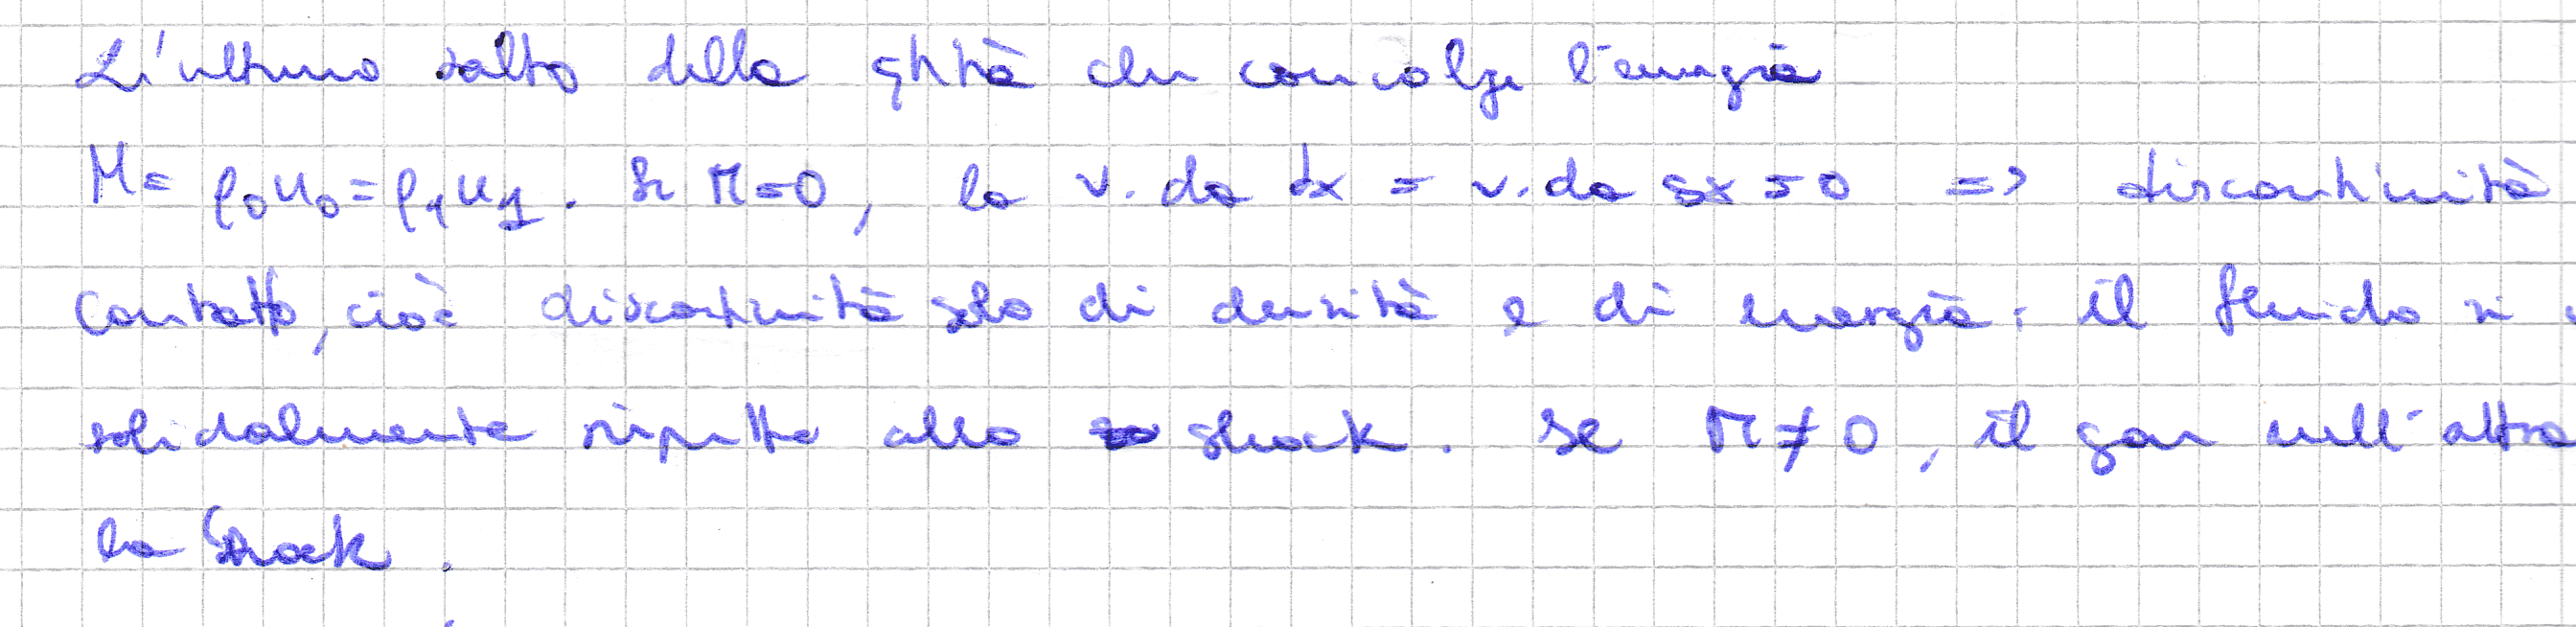 L'ultimo salto della qtità che coinvolge l'energia
M = ρ₀u₀ = ρ₁u₁. Se M=0, la v. da dx = v. da sx = 0 => discontinuità
contatto, cioè discontinuità solo di densità e di energia: il fluido si
solidalmente rispetto allo shock. Se M≠0, il gas sull'altro
lo shock.